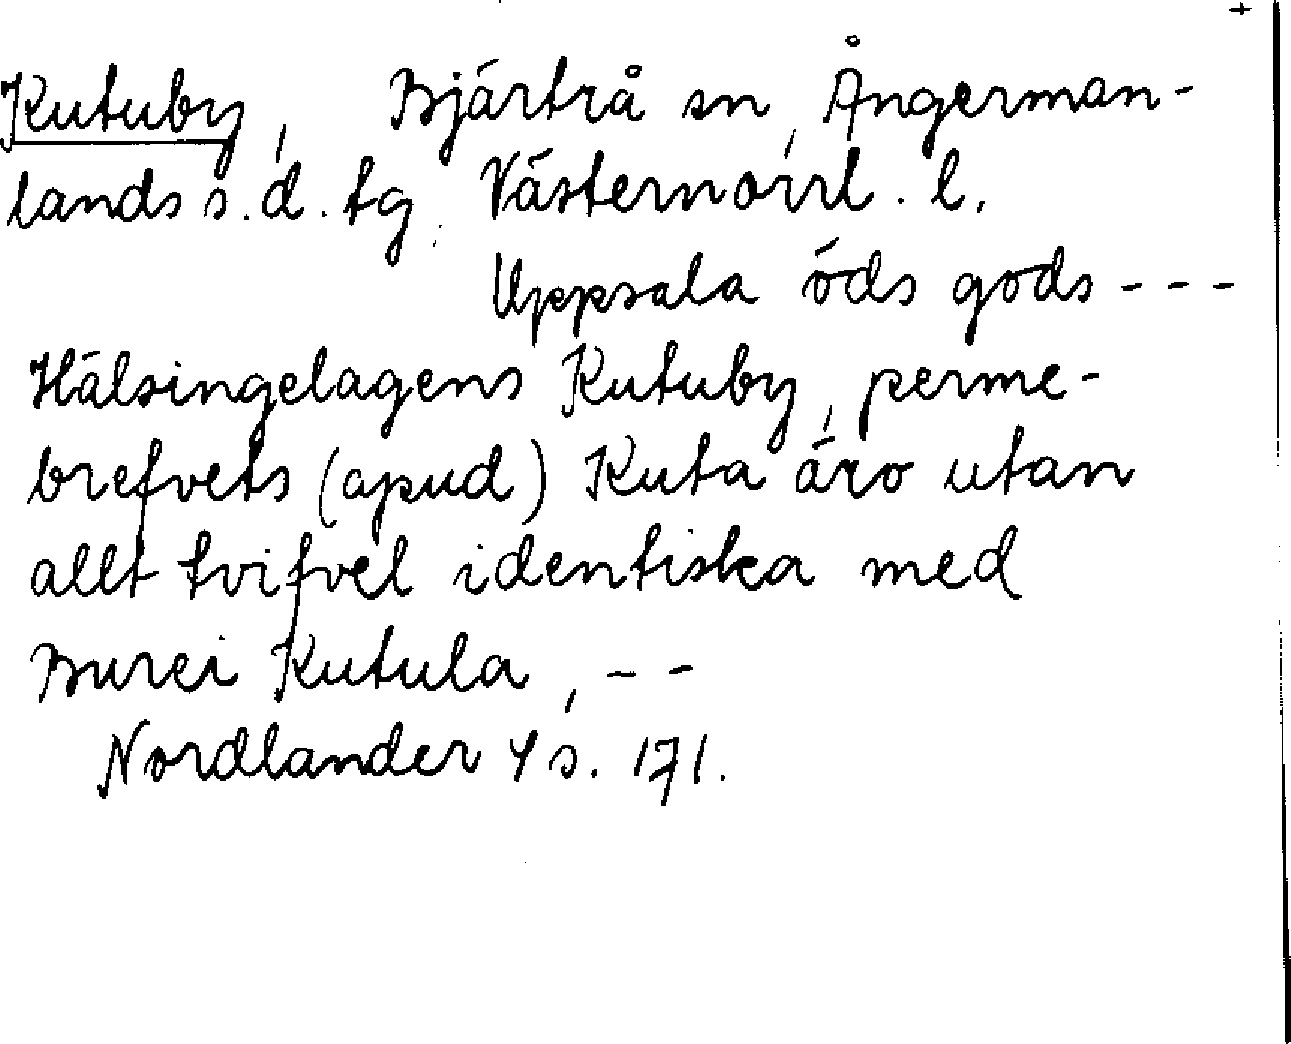 +
Kutuby, Bjärtrå sn, Ångerman-
lands s.d. tg. Västernorrl. l.
Uppsala öds gods - - -
Hälsingelagens Kutuby, perme-
brefvets (apud) Kuta äro utan
allt tvifvel identiska med
Burei Kutula, - -
Nordlander 4 s. 171.